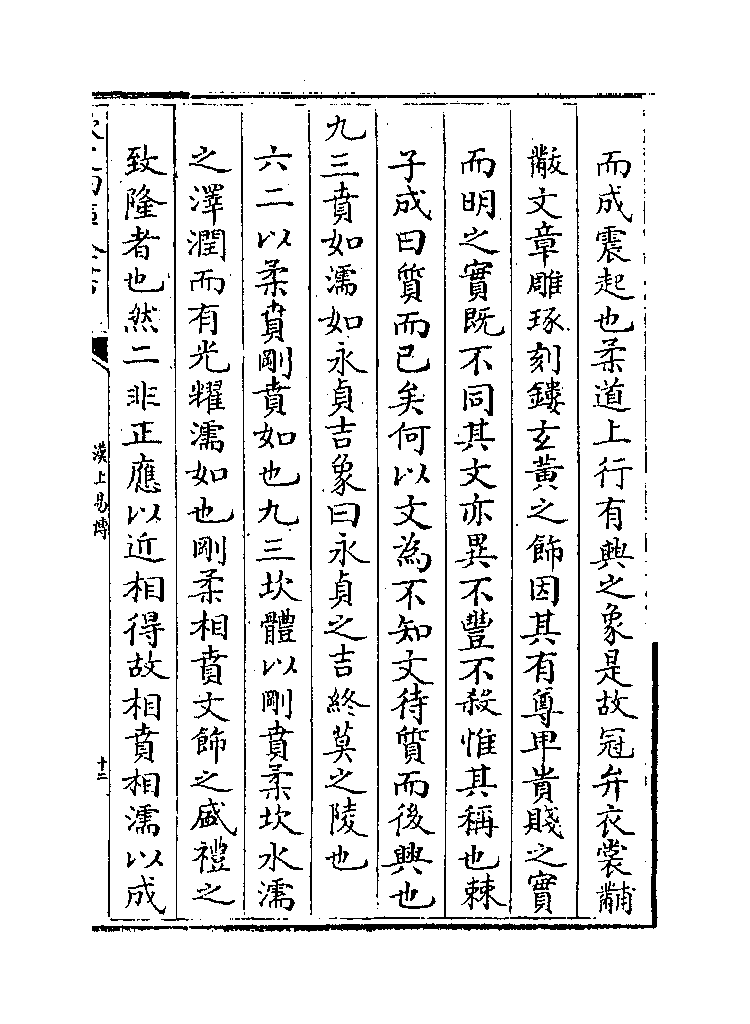 而成震起也柔道上行有興之象是故冠弁衣裳黼
黻文章雕琢刻鏤玄黃之飾因其有尊卑貴賤之實
而明之實既不同其文亦異不豐不殺惟其稱也棘
子成曰質而已矣何以文為不知文待質而後興也
九三賁如濡如永貞吉象曰永貞之吉終莫之陵也
六二以柔賁剛賁如也九三坎體以剛賁柔坎水濡
之澤潤而有光耀濡如也剛柔相賁文飾之盛禮之
致隆者也然二非正應以近相得故相賁相濡以成
漢上易傳
十二